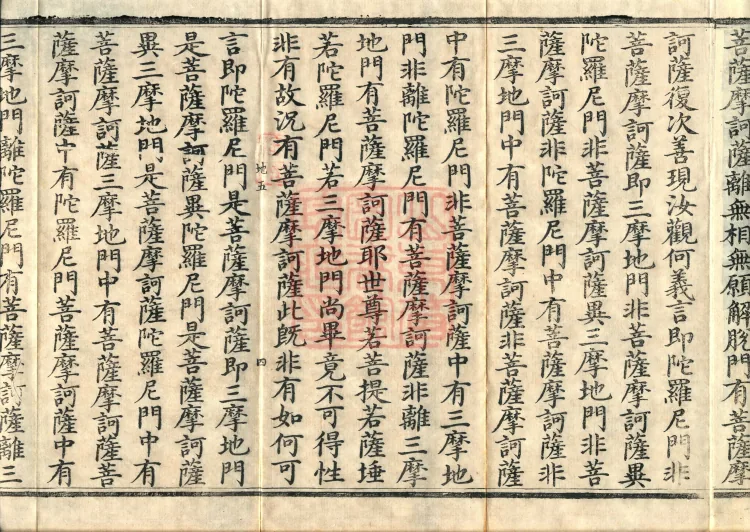 菩薩摩訶薩離無相無願解脫門有菩薩摩
訶薩復次善現汝觀何義言即陀羅尼門非
菩薩摩訶薩即三摩地門非菩薩摩訶薩異
陀羅尼門非菩薩摩訶薩異三摩地門非菩
薩摩訶薩非陀羅尼門中有菩薩摩訶薩非
三摩地門中有菩薩摩訶薩非菩薩摩訶薩
中有陀羅尼門非菩薩摩訶薩中有三摩地
門非離陀羅尼門有菩薩摩訶薩非離三摩
地門有菩薩摩訶薩耶世尊若菩提若薩埵
若陀羅尼門若三摩地門尚畢竟不可得性
非有故況有菩薩摩訶薩此既非有如何可
地五 四
言即陀羅尼門是菩薩摩訶薩即三摩地門
是菩薩摩訶薩異陀羅尼門是菩薩摩訶薩
異三摩地門是菩薩摩訶薩陀羅尼門中有
菩薩摩訶薩三摩地門中有菩薩摩訶薩菩
薩摩訶薩中有陀羅尼門菩薩摩訶薩中有
三摩地門離陀羅尼門有菩薩摩訶薩離三